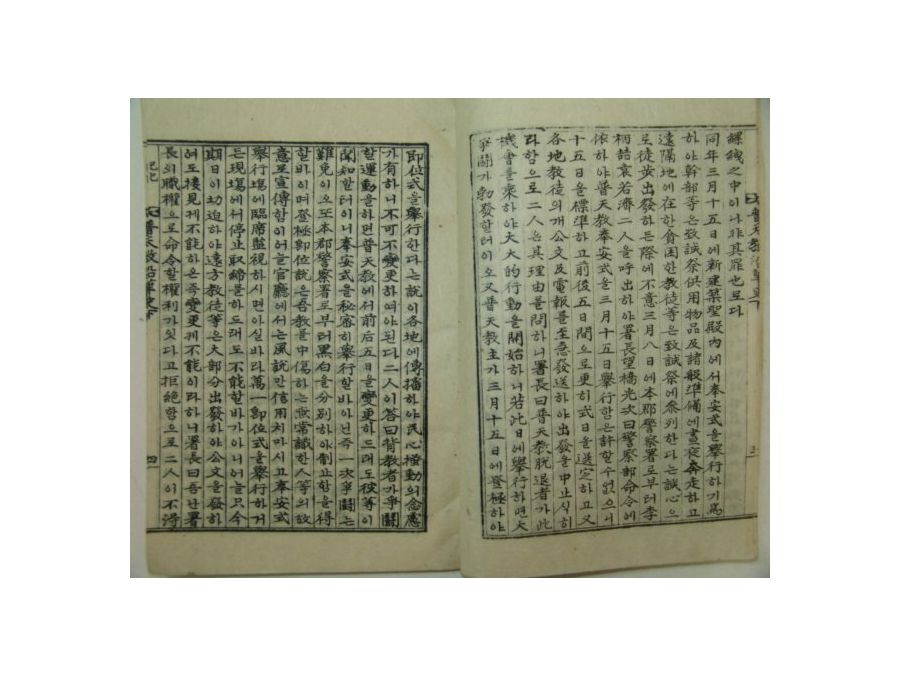 縲絏之中이나非其罪也로다
同年三月十五日에新建築聖殿內에서奉安式을擧行하기爲
하야幹部等은致誠祭供用物品及諸般準備에晝夜奔走하고
遠隔地에在한貧困한敎徒等은致誠祭에參列한다는誠心으
로徒步出發하든際에不意三月八日에本郡警察署로부터李
柄喆袁若濟二人을呼出하야署長望橋光次曰警察部命令에
依하야普天敎奉安式을三月十五日擧行함은許할수없으니
十五日을標準하고前後五日間으로更히式日을選定하고又
各地敎徒의개公文及電報를至急發送하야出發을中止식히
라함으로二人은其理由를問하니署長曰普天敎脫退者가此
機會를乘하야大大的行動을開始하니若此日에擧行하면大
爭鬪가勃發할터이오又普天敎主가三月十五日에登極하야
普天敎沿革史下
卽位式을擧行한다는說이各地에傳播하야民心騷動의念慮
가有하니不可不變更하여야된다二人이答曰背敎者가爭鬪
할運動을하면普天敎에서前后五日을變更하드래도彼等이
聞知할터이니奉安式을秘密히擧行할바아닌즉一次爭鬪는
難免이오또本郡警察署로부러黑白을分別하야制止함을得
할바이며登極卽位說은吾敎를中傷하는無常識한人等의故
意로宣傳함이어늘官廳에서는風說만信用치마시고奉安式
擧行場에臨席監視하시면아실바라萬一卽位式을擧行하거
든現場에서停止取締를하드래도不能할바가아니어늘只今
期日이切迫하야遠方敎徒等은大部分出發하야公文을發하
여도接見게不能하온즉變更케不能이라하니署長曰吾난署
長의職權으로命令할權利가잇다고拒絶함으로二人이不得
普天敎沿革史下
四